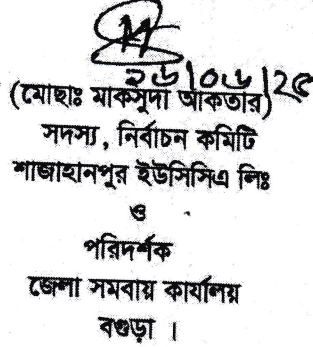 ১৬/০৬/২৫
(মোছাঃ মাকসুদা আকতার)
সদস্য, নির্বাচন কমিটি
শাজাহানপুর ইউসিসিএ লিঃ
ও
পরিদর্শক
জেলা সমবায় কার্যালয়
বগুড়া ।